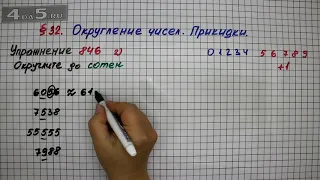 4DO5.RU
§32. Округление чисел. Прикидки.
Упражнение 846 г)
0 1 2 3 4 5 6 7 8 9
Округлите до сотен
+1
6096 ≈ 61
7538
55555
7988